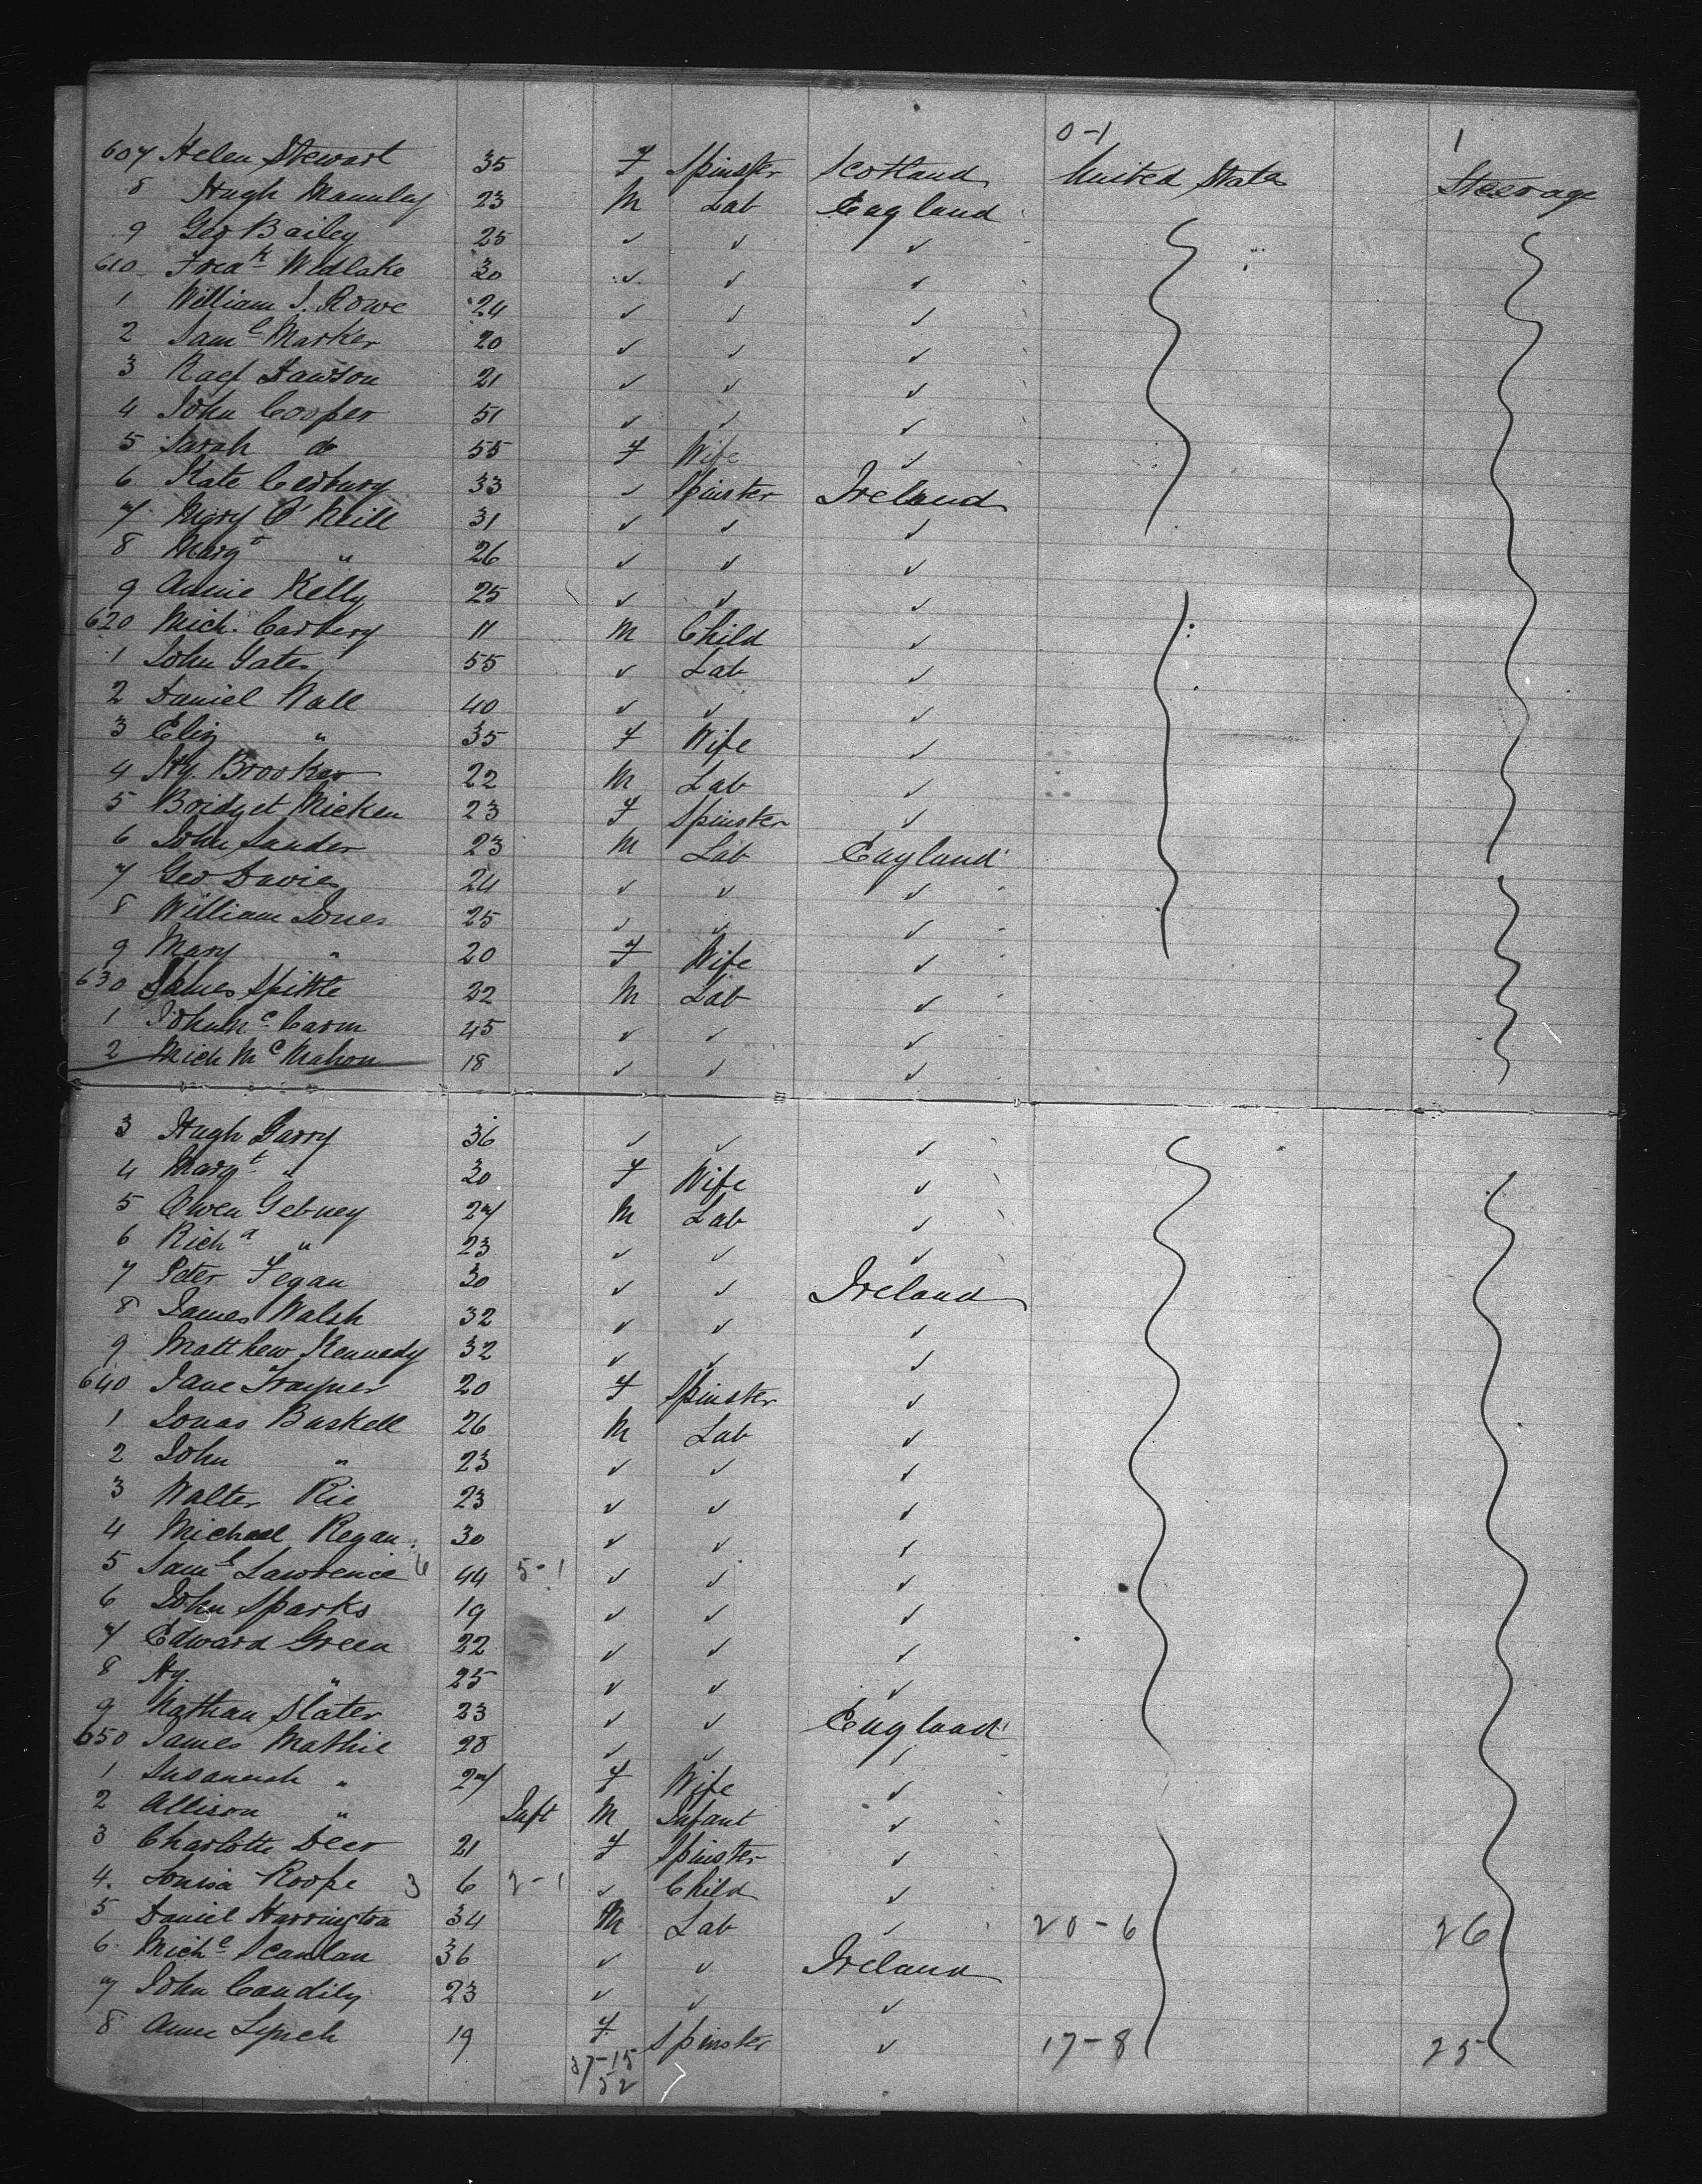 0-1 1
607 Helen Stewart 35 F Spinster Scotland United States Steerage
8 Hugh Mannley 23 M Lab England
9 Geo Bailey 25 ✓ ✓ ✓
610 Fredk Widlake 30 ✓ ✓ ✓
1 William J. Rowe 24 ✓ ✓ ✓
2 Saml Marker 20 ✓ ✓ ✓
3 Dawson 21 ✓ ✓ ✓
4 John Cooper 51 ✓ ✓ ✓
5 Sarah do 55 F Wife ✓
6 Kate 33 ✓ Spinster Ireland
7 Mary O'Neill 31 ✓ ✓ ✓
8 Margt " 26 ✓ ✓ ✓
9 Annie Kelly 25 ✓ ✓ ✓
620 Mich. Carbery 11 M Child ✓
1 John Yates 55 ✓ Lab ✓
2 Daniel Wall 40 ✓ ✓ ✓
3 Eliz " 35 F Wife ✓
4 Hy. Brooker 22 M Lab ✓
5 Bridget Micken 23 F Spinster ✓
6 John Sander 23 M Lab England
7 Geo Davies 24 ✓ ✓ ✓
8 William Jones 25 ✓ ✓ ✓
9 Mary " 20 F Wife ✓
630 James Spittle 22 M Lab ✓
1 John Mc Carm 45 ✓ ✓ ✓
2 Mich Mc Mahon 18 ✓ ✓ ✓
3 Hugh Garry 36 ✓ ✓ ✓
4 Margt " 30 F Wife ✓
5 Owen Gebney 27 M Lab ✓
6 Richd " 23 ✓ ✓ ✓
7 Peter Fegan 30 ✓ ✓ Ireland
8 James Walsh 32 ✓ ✓ ✓
9 Matthew Kennedy 32 ✓ ✓ ✓
640 Jane Traynor 20 F Spinster ✓
1 Jonas Buskell 26 M Lab ✓
2 John " 23 ✓ ✓ ✓
3 Walter Rie 23 ✓ ✓ ✓
4 Michael Regan 30 ✓ ✓ ✓
5 Saml Lawrence 6 44 5-1 ✓ ✓ ✓
6 John Sparks 19 ✓ ✓ ✓
7 Edward Green 22 ✓ ✓ ✓
8 Hy. " 25 ✓ ✓ ✓
9 Nathan Slater 23 ✓ ✓ England
650 James Mathie 28 ✓ ✓ ✓
1 Susannah " 27 F Wife ✓
2 Allison " Inft M Infant ✓
3 Charlotte Deer 21 F Spinster ✓
4. Louisa Roope 3 6 2-1 ✓ Child ✓
5 Daniel Harrington 34 M Lab ✓ 20-6 26
6 Michl Scanlan 36 ✓ ✓ Ireland
7 John Candily 23 ✓ ✓ ✓
8 Anne Lynch 19 F Spinster ✓ 17-8 25
37-15
52